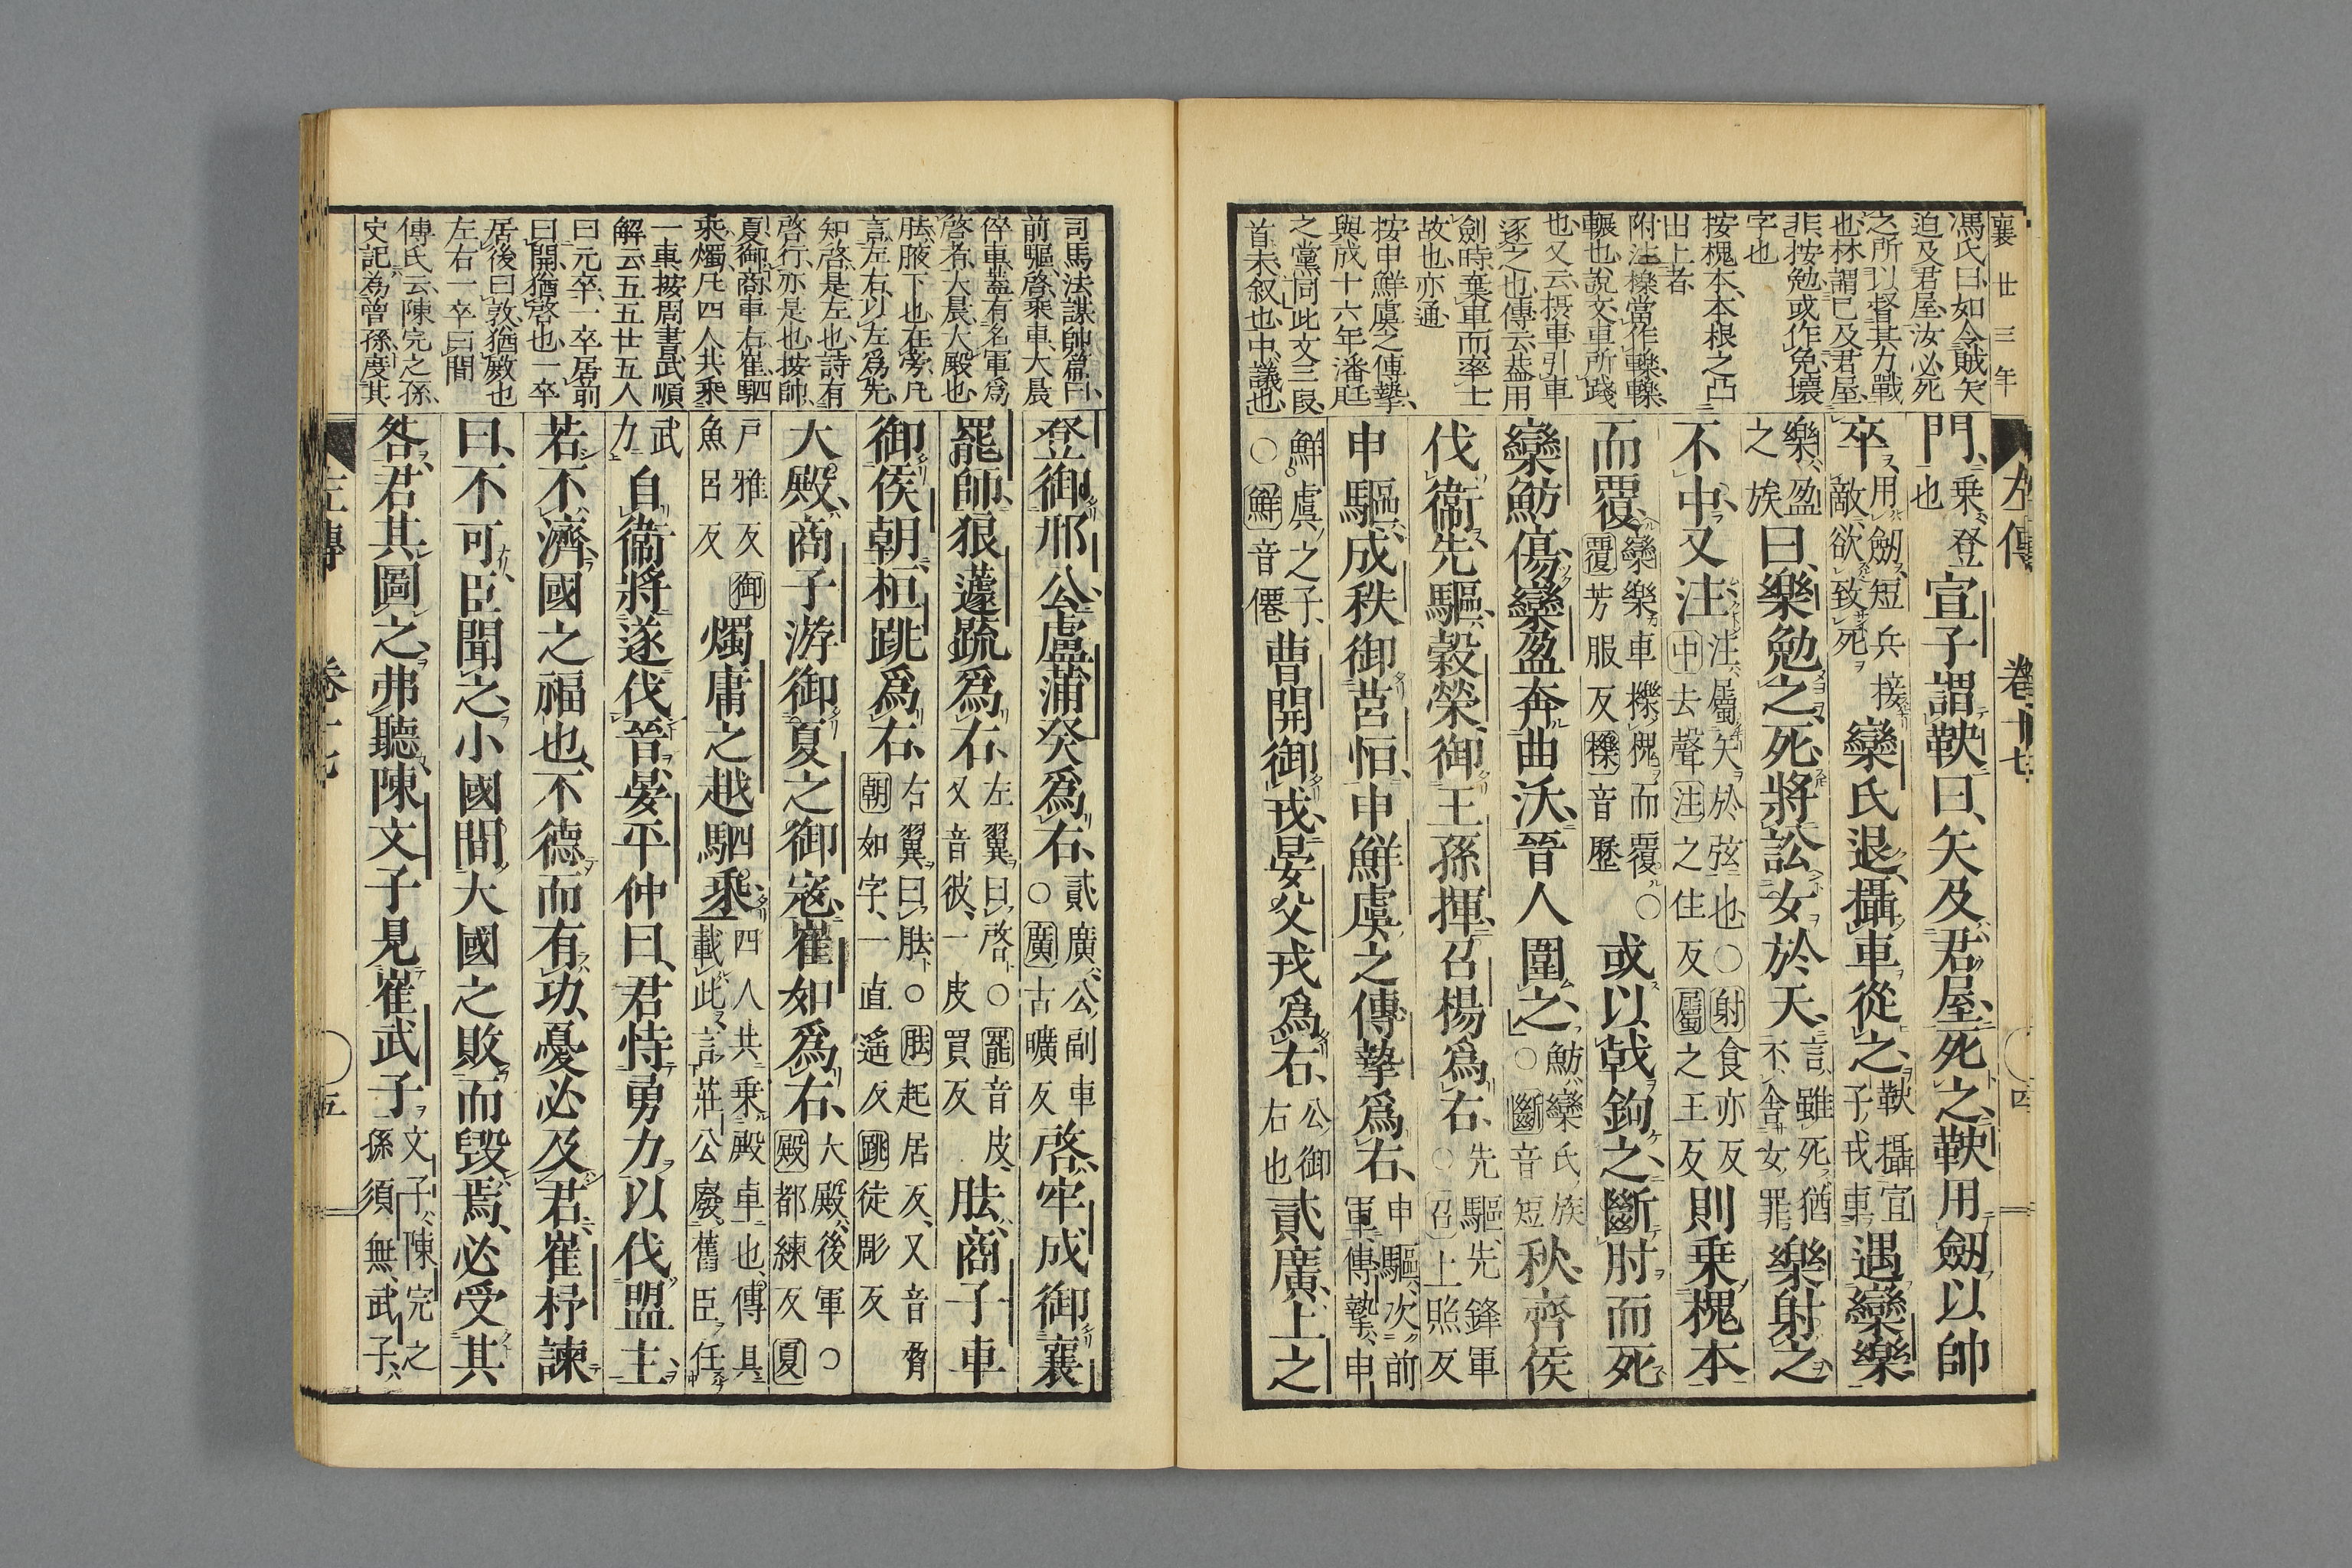 襄廿三年
馮氏曰如令賊矢
迫及君屋汝必死
之所以督其力戰
也林謂已及君屋
非按勉或作免壞
字也
按槐本本根之凸
出上者
附注櫟當作轢轢
輾也說文車所踐
也又云摂車引車
逐之也傳云葢用
劍時棄車而率士
故也亦通
按申鮮虞之傳摯
與成十六年潘尫
之黨同此文三叚
首未叙也中議也
左傳 卷十七 四
門乗登
也宣子謂鞅曰矢及君屋死之鞅用劔以帥
卒用劔短兵接
敵欲致死欒氏退攝車從之鞅攝宣
子戎車遇欒樂
樂盈
之族曰樂勉之死將訟女於天言雖死猶
不舎女罪樂射之
不中又注注屬矢於弦也○射食亦反
中去聲注之住反屬之王反則乗槐本
而覆欒樂車櫟槐而覆○
覆芳服反櫟音歷或以戟鉤之斷肘而死
欒魴傷欒盈奔曲沃晉人圍之魴欒氏族
○斷音短秋齊侯
伐衞先驅穀榮御王孫揮召楊爲右先驅先鋒軍
○召上照反
申驅成秩御莒恒申鮮虞之傳摯爲右申驅次前
軍傳摯申
鮮虞之子
○鮮音僊曹開御戎晏父戎爲右公御
右也貳廣上之
司馬法謀帥篇曰
前驅啓乘車大晨
倅車蓋有名軍爲
啓者大晨大殿也
胠腋下也在旁凡
言左右以左爲先
知啓是左也詩有
啓行亦是也按帥
夏御商車右崔駟
乘燭凡四人共乘
一車按周書武順
解云五五廿五人
曰元卒一卒居前
曰開猶啓也一卒
居後曰敦猶殿也
左右一卒曰閭
傳氏云陳完之孫
史記為曾孫度其
登御邢公盧蒲癸爲右貳廣公副車
○廣古曠反啓牢成御襄
罷師狼蘧疏爲右左翼曰啓○罷音皮
又音彼一皮買反胠商子車
御侯朝桓跳爲右右翼曰胠○胠起居反又音脅
朝如字一直遥反跳徒彫反
大殿商子游御夏之御寇崔如爲右大殿後軍○
殿都練反夏
戸雅反御
魚呂反燭庸之越駟乘四人共乘殿車也傳具
載此言莊公廢舊臣任
武
力自衞將遂伐晉晏平仲曰君恃勇力以伐盟主
若不濟國之福也不德而有功憂必及君崔杼諫
曰不可臣聞之小國間大國之敗而毀焉必受其
咎君其圖之弗聽陳文子見崔武子文子陳完之
孫須無武子
左傳 卷十七 五